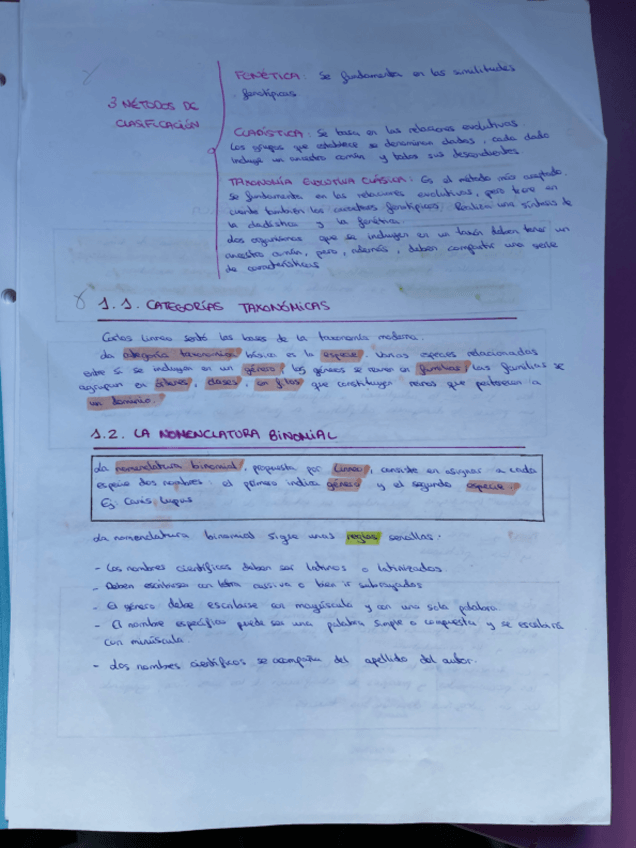 3 MÉTODOS DE
CLASIFICACIÓN
FENÉTICA: Se fundamenta en las similitudes
fenotípicas
CLADÍSTICA: Se basa en las relaciones evolutivas.
Los grupos que establece se denominan clados, cada clado
incluye un ancestro común y todos sus descendientes.
TAXONOMÍA EVOLUTIVA CLÁSICA: Es el método más aceptado.
Se fundamenta en las relaciones evolutivas, pero tiene en
cuenta también los caracteres fenotípicos. Realiza una síntesis de
la cladística y la fenética.
Los organismos que se incluyen en un taxón deben tener un
ancestro común, pero, además, deben compartir una serie
de características
1.1. CATEGORÍAS TAXONÓMICAS
Carlos Linneo sentó las bases de la taxonomía moderna.
La categoría taxonómica básica es la especie. Varias especies relacionadas
entre sí se incluyen en un género, los géneros se reúnen en familias, las familias se
agrupan en órdenes, clases, en filos que constituyen reinos que pertenecen a
un dominio.
1.2. LA NOMENCLATURA BINOMIAL
La nomenclatura binomial, propuesta por Linneo, consiste en asignar a cada
especie dos nombres: el primero indica género y el segundo especie.
Ej: Canis Lupus
La nomenclatura binomial sigue unas reglas sencillas:
- Los nombres científicos deben ser latinos o latinizados.
- Deben escribirse con letra cursiva o bien ir subrayados
- El género debe escribirse en mayúscula y con una sola palabra.
- El nombre específico puede ser una palabra simple o compuesta y se escribirá
con minúscula.
- Los nombres científicos se acompaña del apellido del autor.